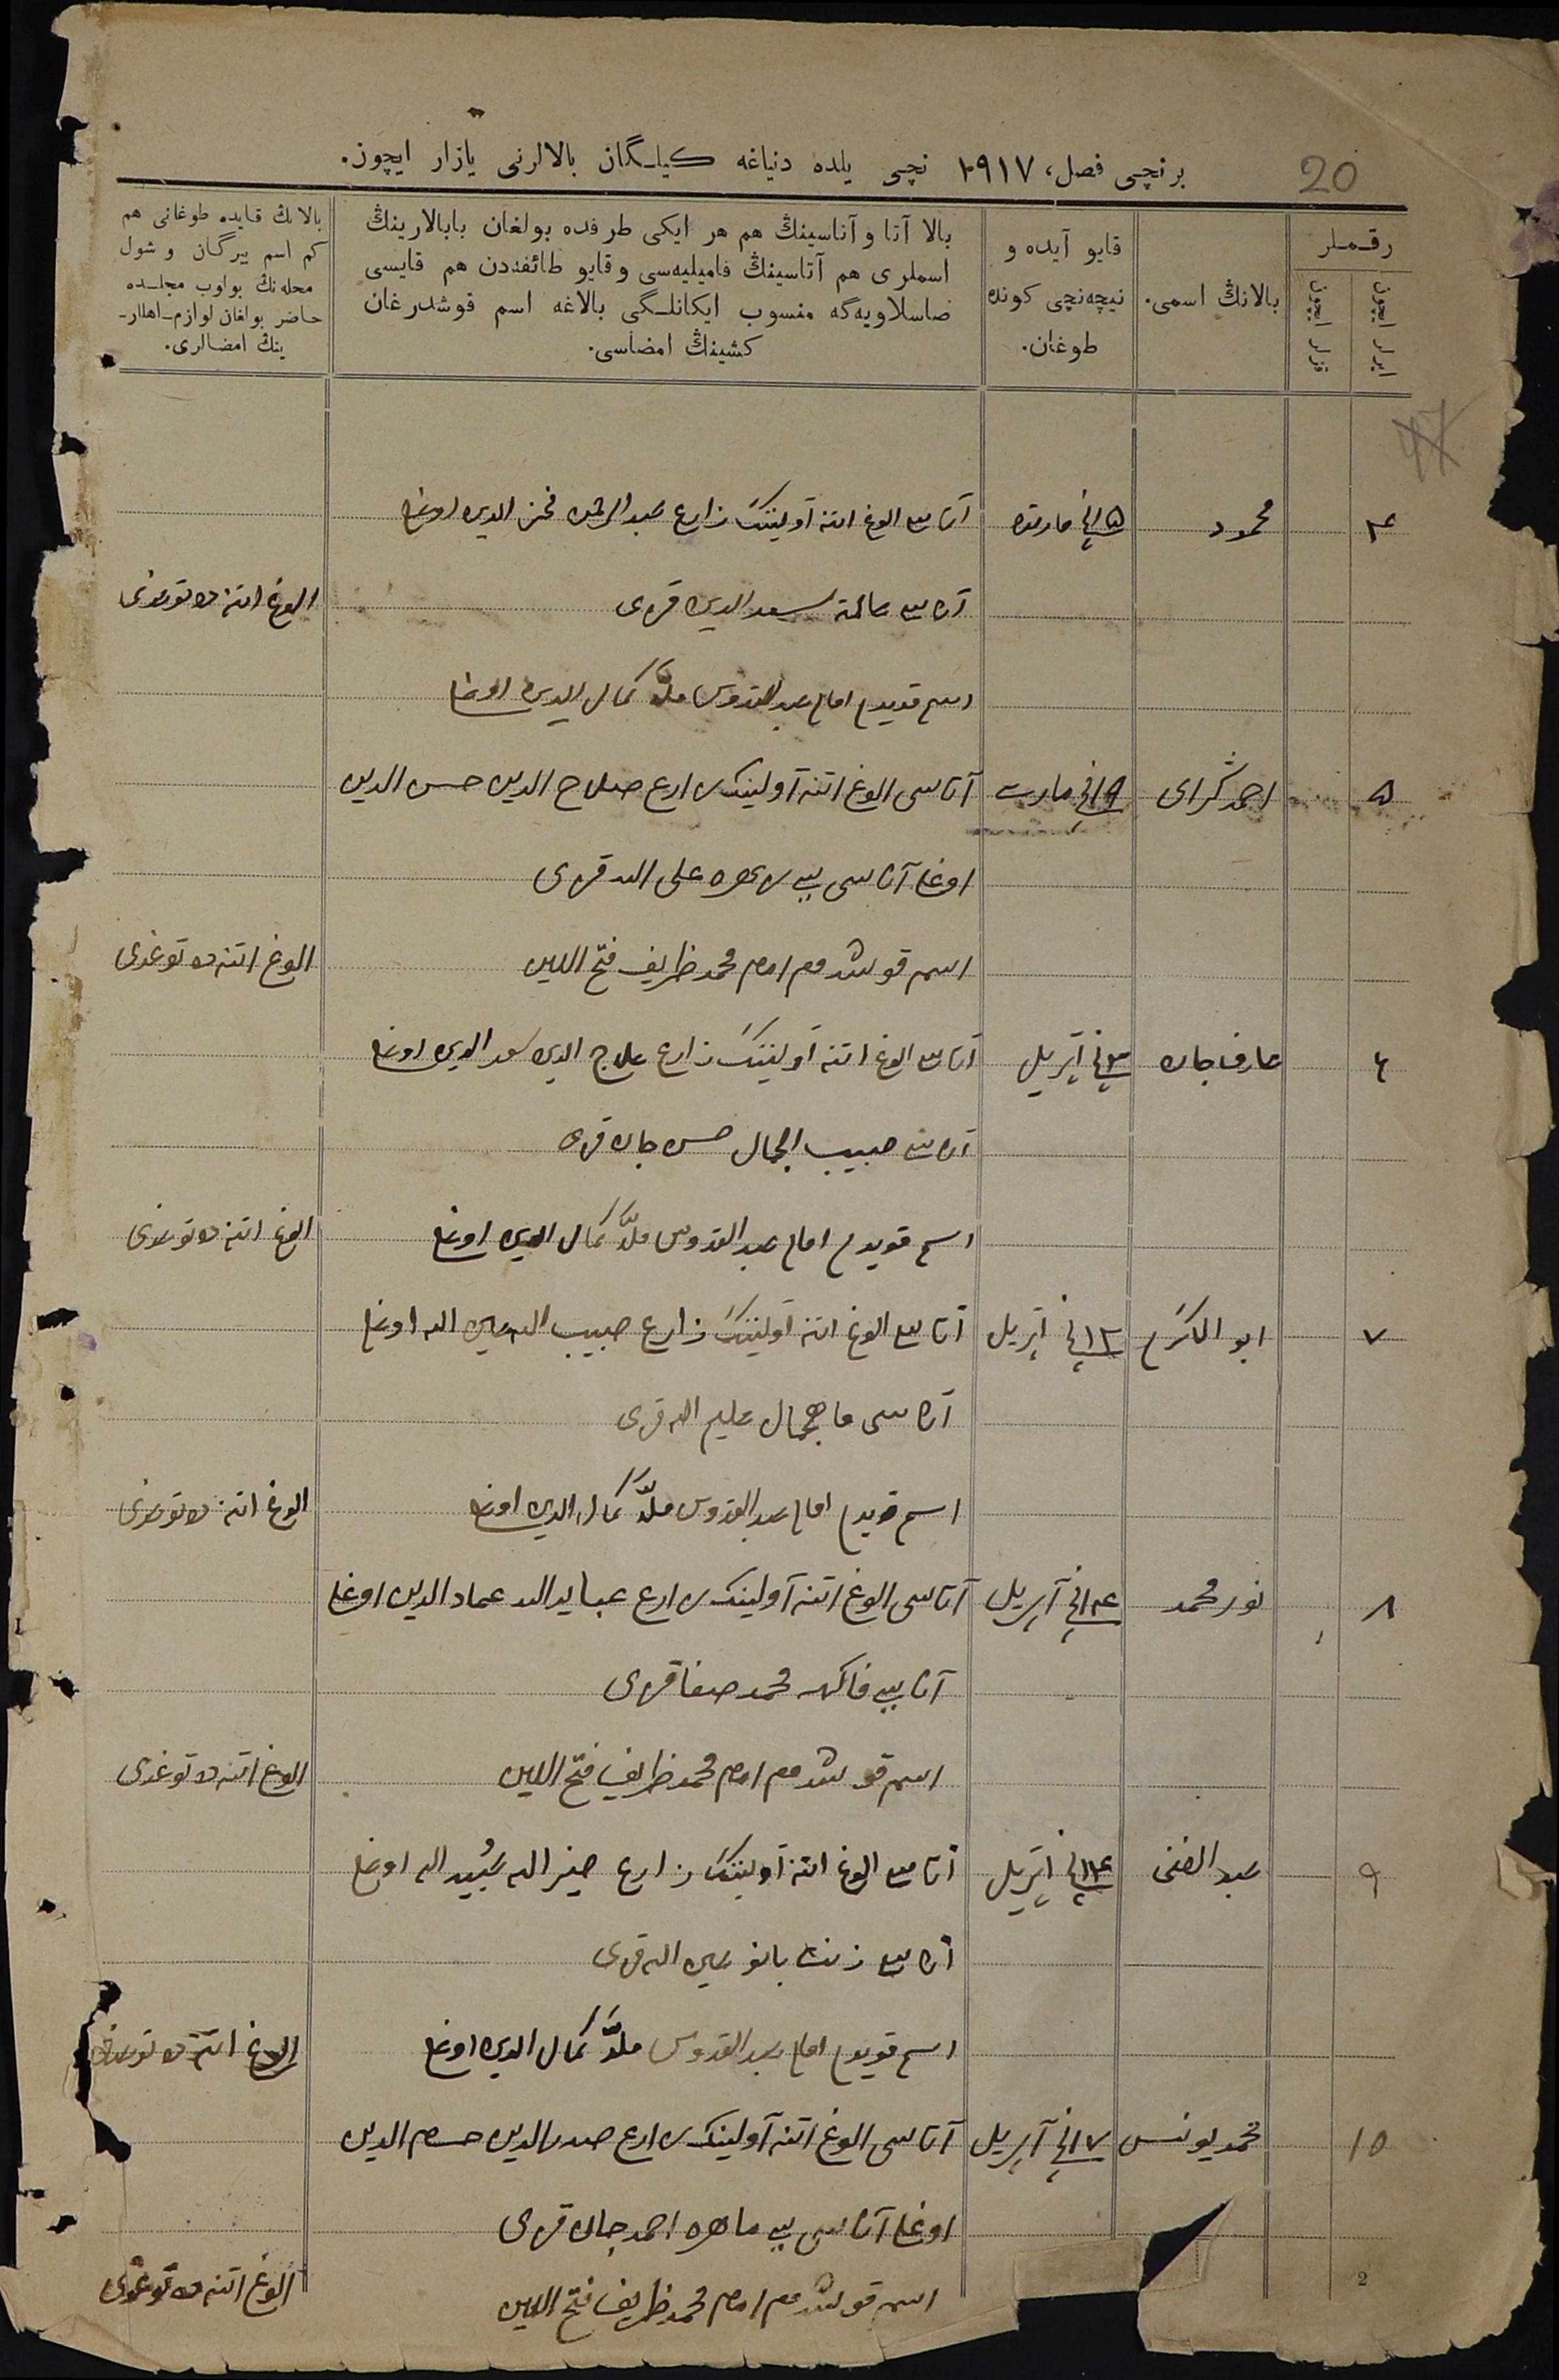 20
برنچی فصل، ١٩١٧ نچی یلده دنیاغه كیلـگان بالالرنی یازار ایچوز.
رقـمـلر
ایرلر ایچون
قزلر ایچون
بالانڭ اسمی.
قایو آیده و
نیچه‌نچی كونده
طوغان.
بالا آتا و آناسینڭ هم هر ایكی طرفده بولغان بابالارینڭ
اسملری هم آتاسینڭ فامیلیه‌سی و قایو طائفه‌دن هم قایسی
صاسلاویه‌گه منسوب ایكانلـگی بالاغه اسم قوشدرغان
كشینڭ امضاسی.
بالانڭ قایده طوغانی هم
كم اسم بیرگان و شول
محله‌نڭ بولوب مجلـسده
حاضر بولغان لوازم-اهللار-
ینڭ امضالری.
47
٤ محمود ١٥نچی مارتده آتاسی الوغ اتنه آولینڭ زارع عبدالرحمن فخرالدین اوغلی
آناسی سعدالدین قزی الوغ اتنه ده توغدی
اسم قویدم امام عبدالقدوس ملا كمال الدین اوغلی
٥ احمدگرای ١٩نچی مارت آتاسی الوغ اتنه آولینڭ زارع صلاح الدین حسن الدین
اوغلی آناسی بی بی علی الله قزی
اسم قوشدم امام محمد ظریف فتح الدین الوغ اتنه ده توغدی
٦ عارف جان آپریل آتاسی الوغ اتنه آولینڭ زارع علاج الدین سعدالدین اوغلی
آناسی حبیب الجمال حسن جان قزی
اسم قویدم امام عبدالقدوس ملا كمال الدین اوغلی الوغ اتنه ده توغدی
٧ ابو المكارم ١٣نچی آپریل آتاسی الوغ اتنه آولینڭ زارع حبیب الله عین الله اوغلی
آناسی ماهجمال علیم الله قزی
اسم قویدم امام عبدالقدوس ملا كمال الدین اوغلی الوغ اتنه ده توغدی
٨ نورمحمد ١٤نچی آپریل آتاسی الوغ اتنه آولینڭ زارع عبایدالله عمادالدین اوغلی
آناسی فاكهه محمدصفا قزی
اسم قوشدم امام محمد ظریف فتح الدین الوغ اتنه ده توغدی
٩ عبدالغنی ١٤نچی آپریل آتاسی الوغ اتنه آولینڭ زارع خیرالله عبیدالله اوغلی
آناسی بانو عین الله قزی
اسم قویدم امام عبدالقدوس ملا كمال الدین اوغلی الوغ اتنه ده توغدی
١٥ محمدیونس ١٧نچی آپریل آتاسی الوغ اتنه آولینڭ زارع صدرالدین حسام الدین
اوغلی آناسی بی بی ماهره احمدجان قزی
اسم قوشدم امام محمد ظریف فتح الدین الوغ اتنه ده توغدی
2